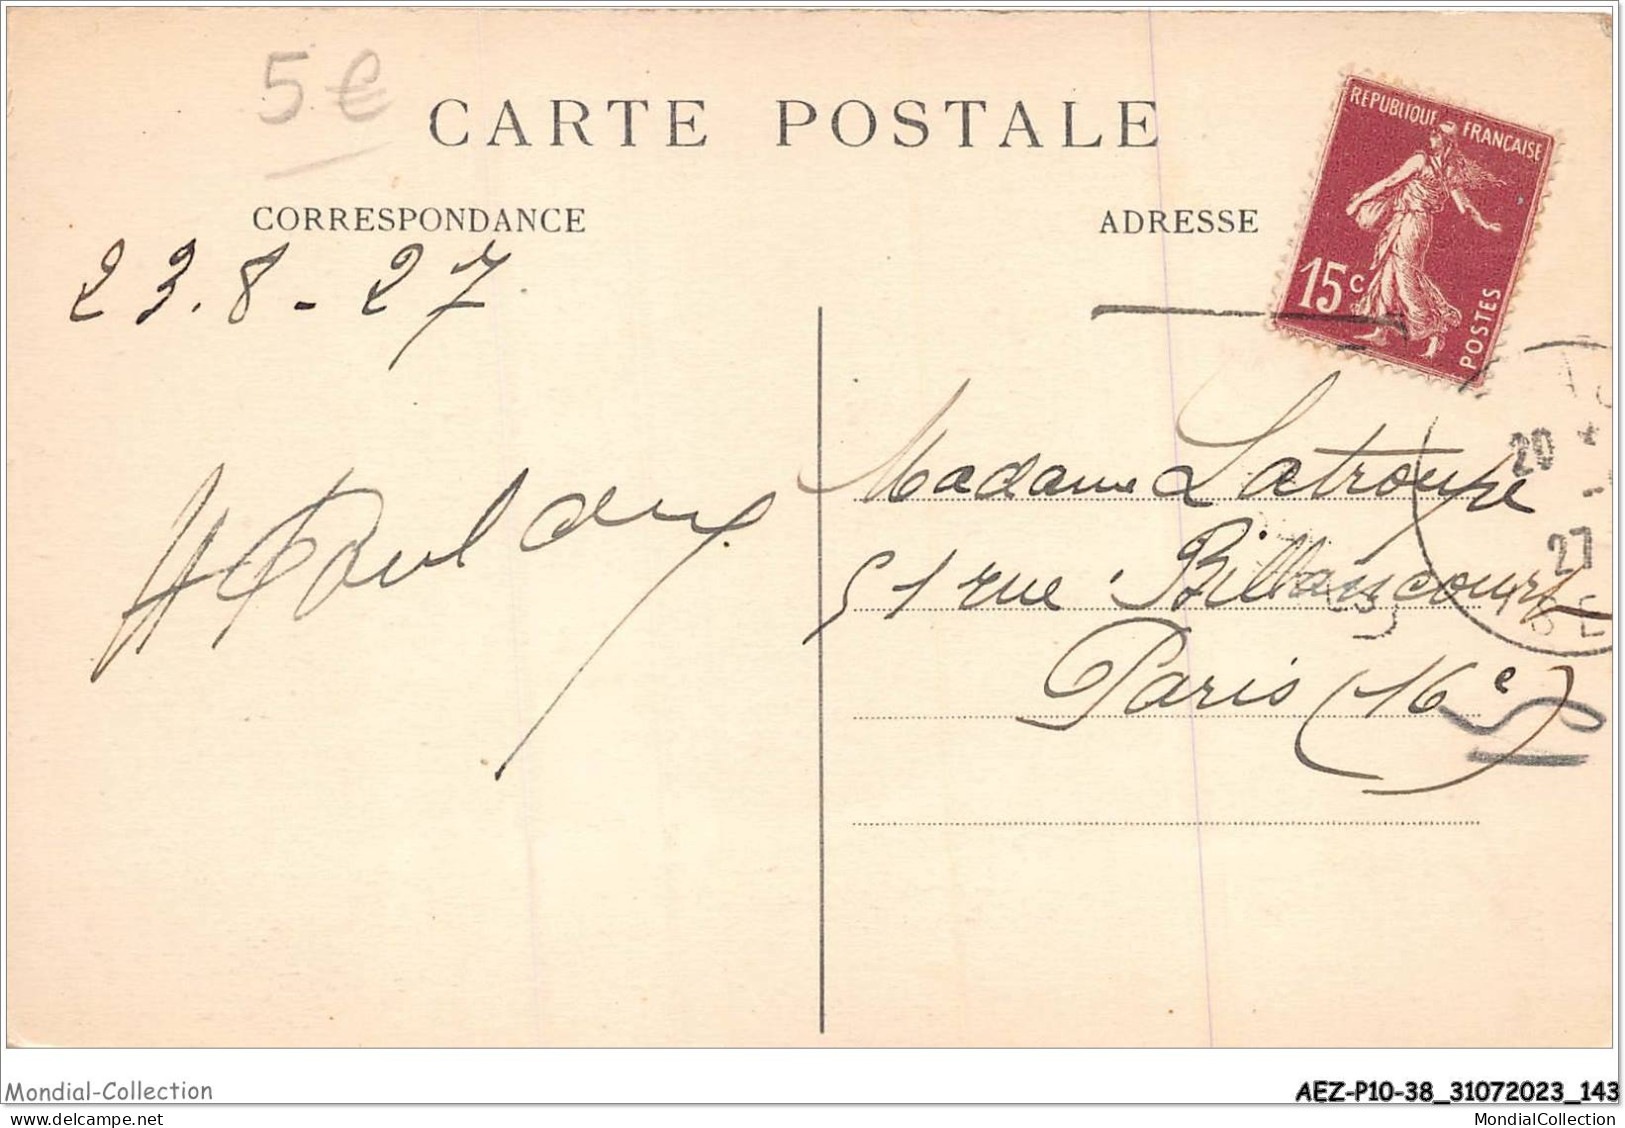 5 €
CARTE POSTALE
CORRESPONDANCE
ADRESSE
REPUBLIQUE FRANÇAISE
15 c
POSTES
23.8-27
Madame Latroupe
51 rue Billancourt
Paris (16e)
20
27
Mondial-Collection
AEZ-P10-38_31072023_143
MondialCollection.com
MondialCollection